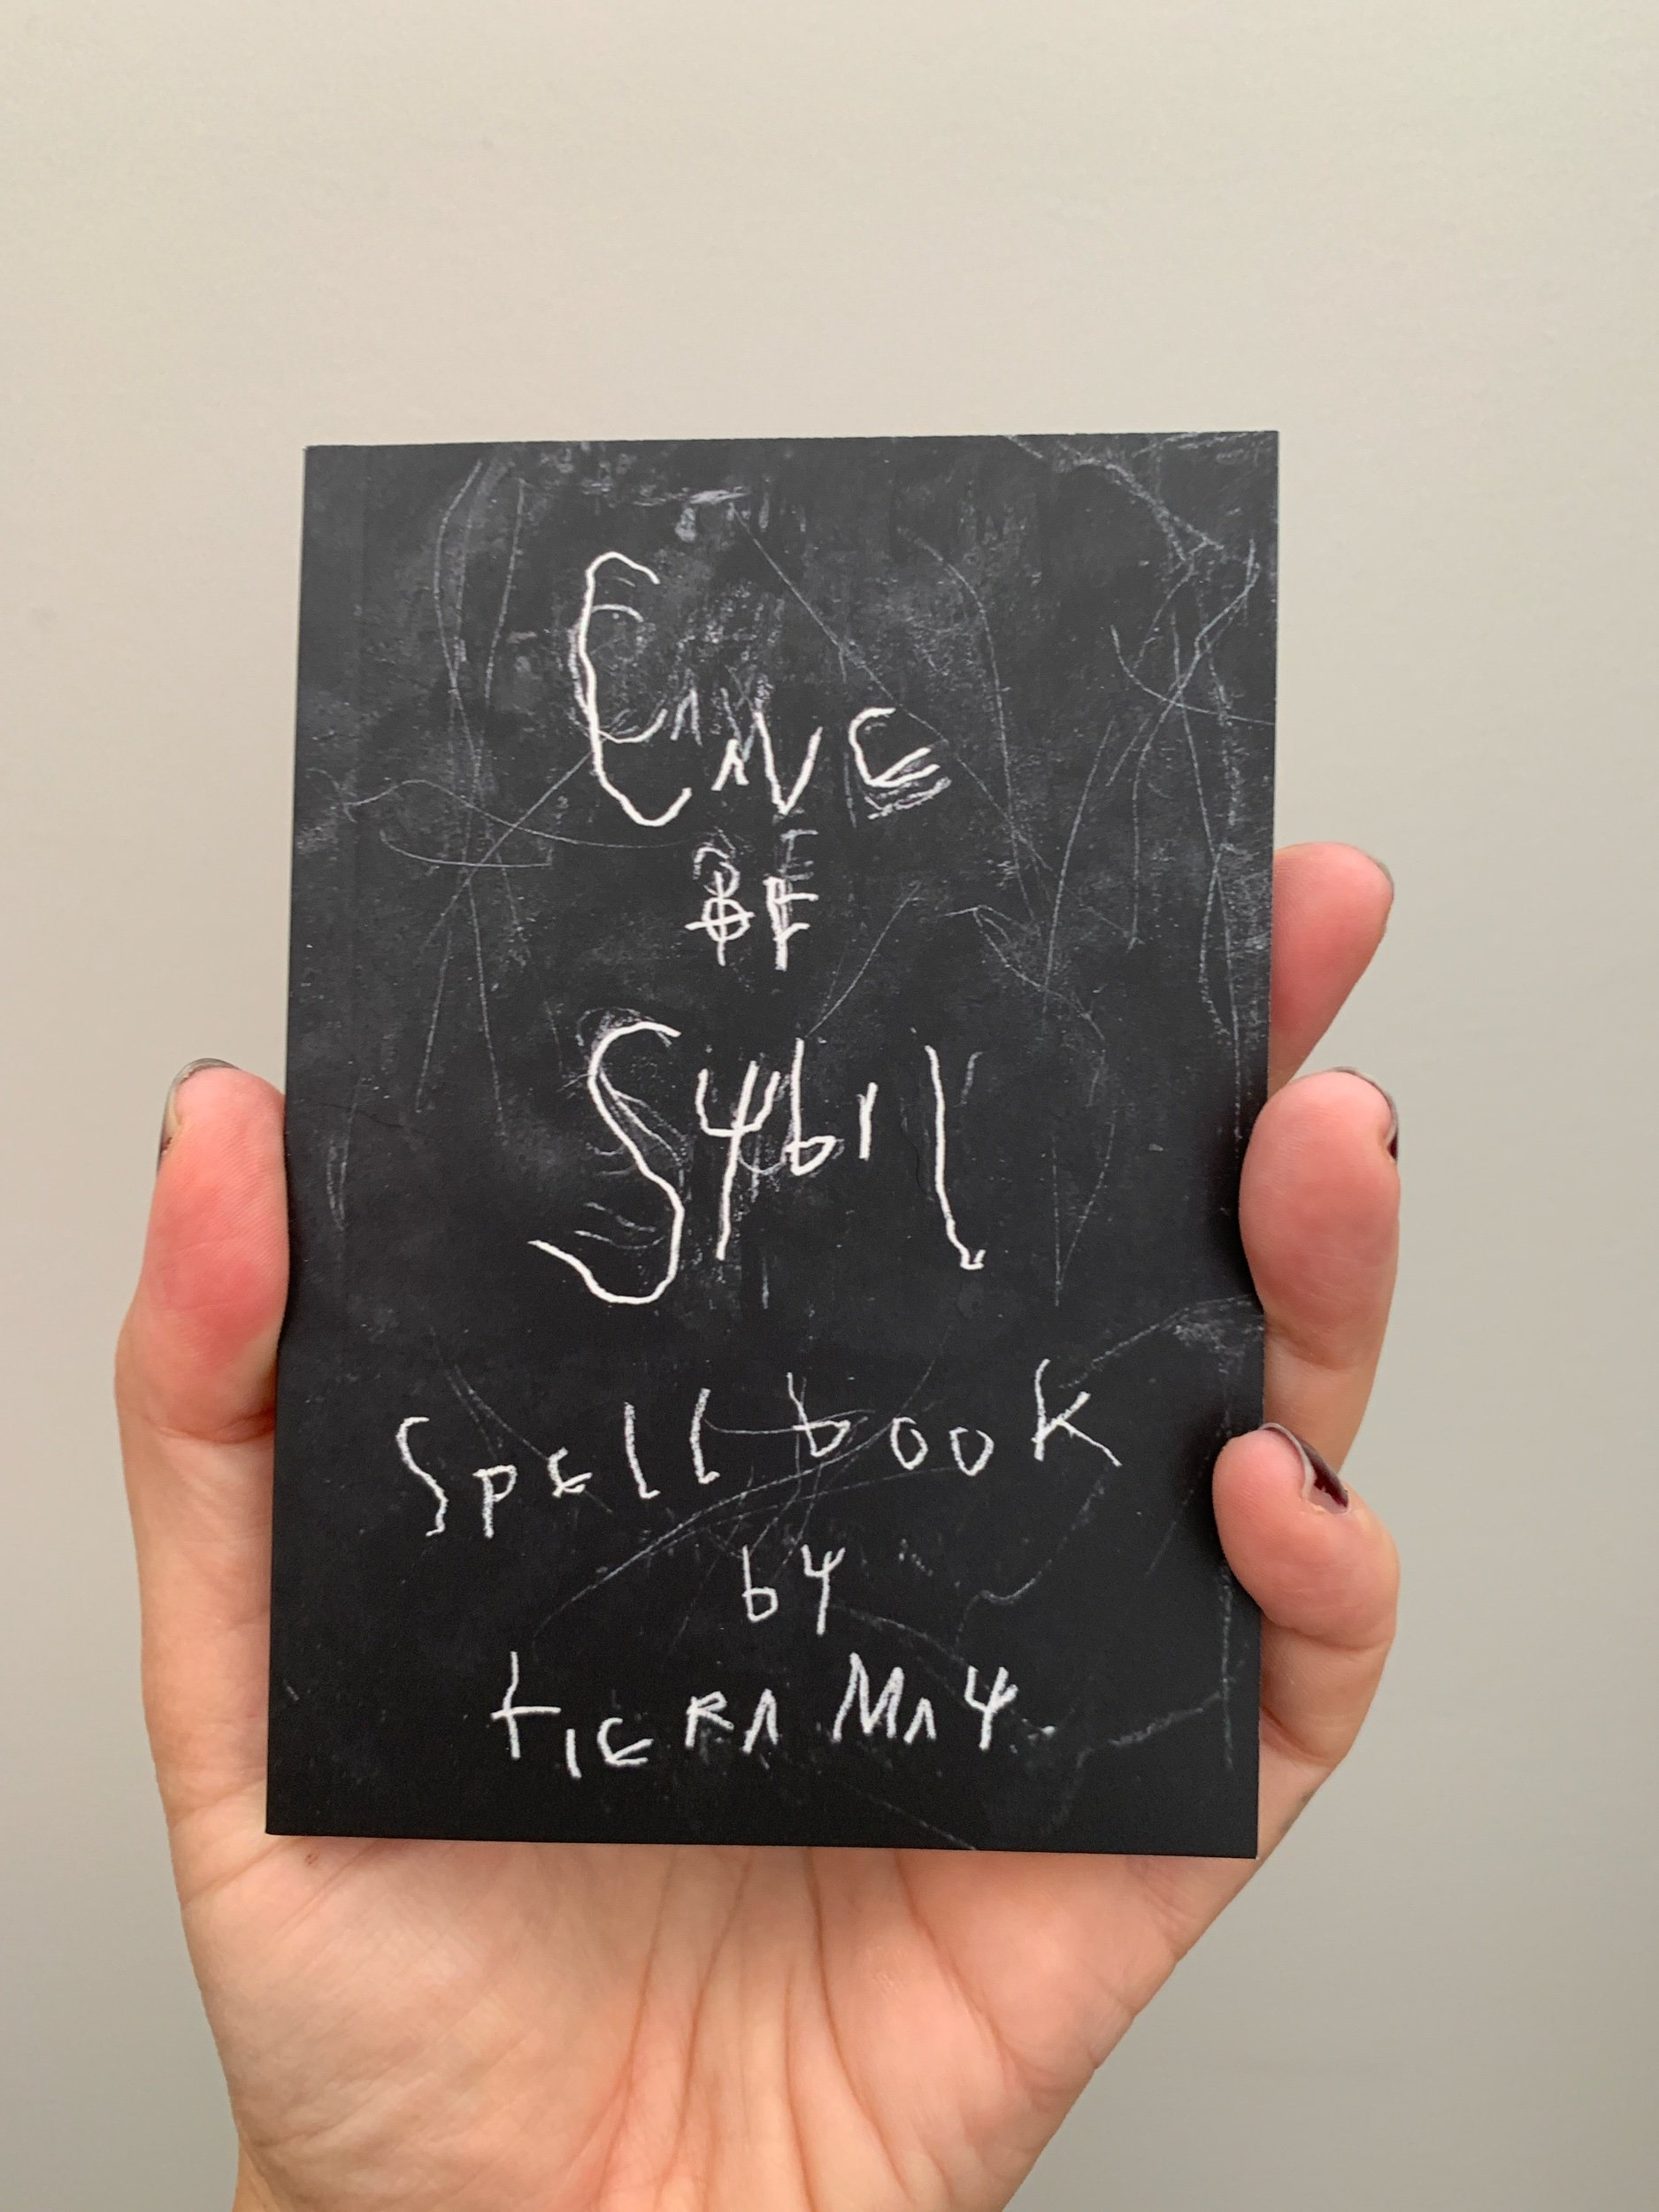 CAVE
OF
Sybil
Spell book
by
tiERA MAY.